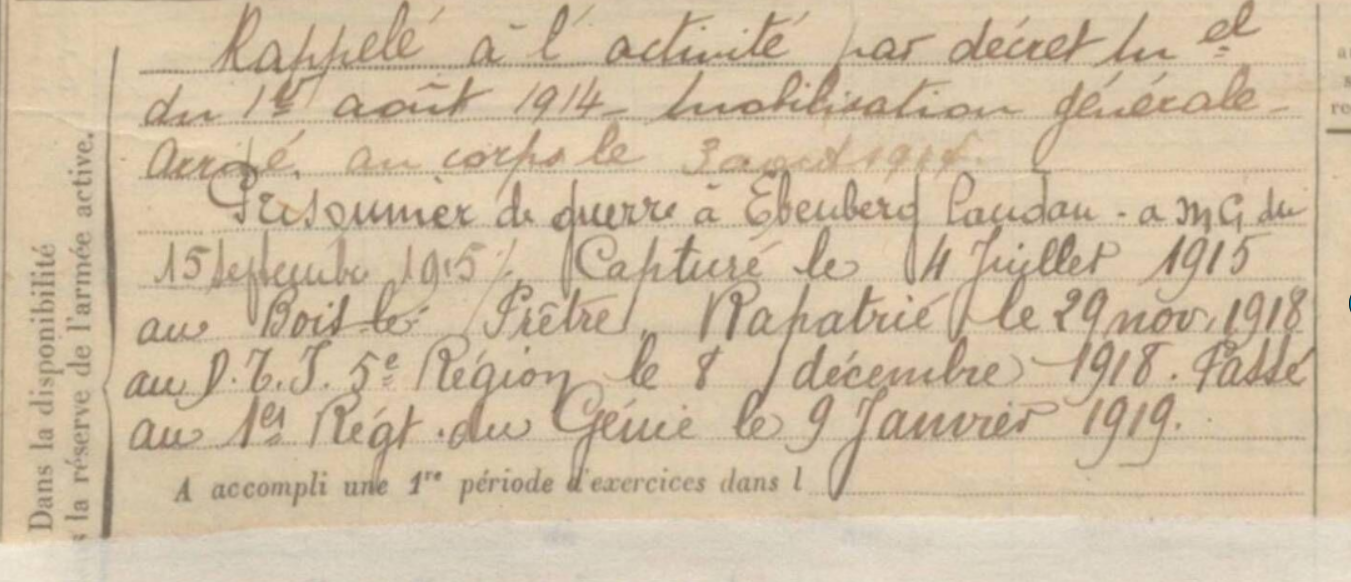 Rappelé à l'activité par décret 
du 1er août 1914 Mobilisation générale -
Arrivé au corps le 3 aout 1914.
Prisonnier de guerre à Ebenberg Landau - a M G du
15 septembre 1915 /. Capturé le 4 Juillet 1915
au Bois le Prêtre, Rapatrié le 29 nov. 1918
au D.T.I. 5e Région le 8 décembre 1918. Passé
au 1er Régt. du Génie le 9 Janvier 1919.
A accompli une 1re période d'exercices dans l
Dans la disponibilité
s la réserve de l'armée active.